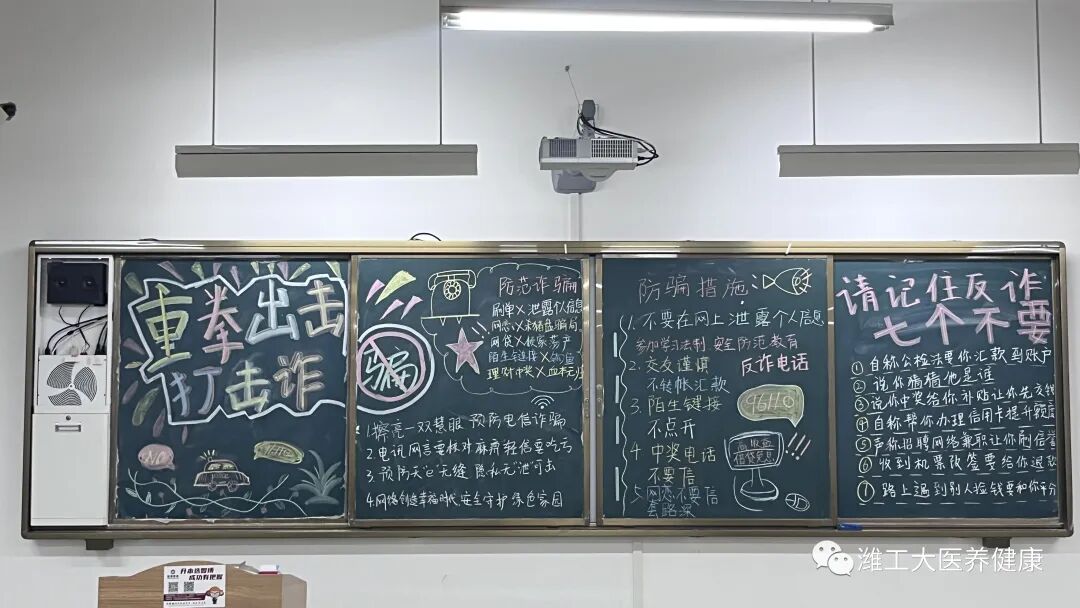 重拳出击
打击诈
NO
110
防范诈骗
刷单X泄露个人信息
网恋X杀猪盘骗局
网贷X被家荡产
陌生链接X
理财中奖X血本无归
骗
1.擦亮一双慧眼 预防电信诈骗
2.电讯网言要核对 麻痹轻信要吃亏
3.预防天心"无缝 隐私无"泄"可击
4.网络创造幸福时代 安全守护绿色家园
防骗措施:
1.不要在网上泄露个人信息
参加学习法制 安全防范教育
2.交友谨慎
不转帐汇款
反诈电话
96110
3.陌生链接
不点开
4.中奖电话
不要信
5.网恋不要信
套路深
请记住反诈
七个不要
① 自称公检法要你汇款到账户
② 说你猜猜他是谁
③ 说你中奖给你补贴让你先交钱
④ 自称帮你办理信用卡提升额度
⑤ 声称招聘网络兼职让你刷信誉
⑥ 收到机票改签要给你退
⑦ 路上遇到别人捡钱要和你平分
升本选
成功有把握
潍工大医养健康